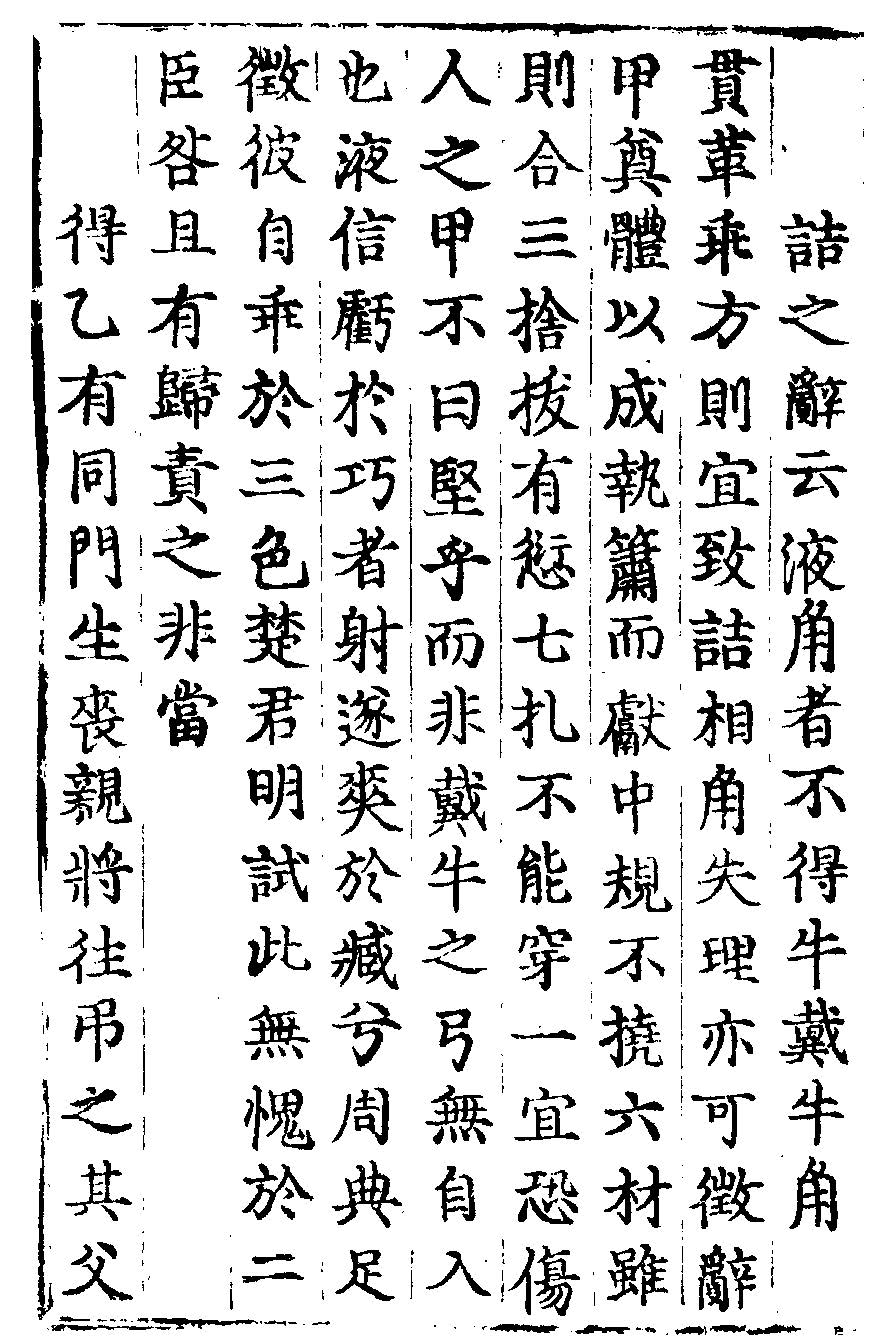 詰之辭云液角者不得牛戴牛角
貫革乖方則宜致詰相角失理亦可徵辭
甲奠體以成執簫而獻中規不撓六材雖
則合三捨拔有愆七扎不能穿一宜恐傷
人之甲不曰堅乎而非戴牛之弓無自入
也液信虧於巧者射遂爽於臧兮周典足
徵彼自乖於三色楚君明試此無愧於二
臣咎且有歸責之非當
得乙有同門生喪親將往弔之其父